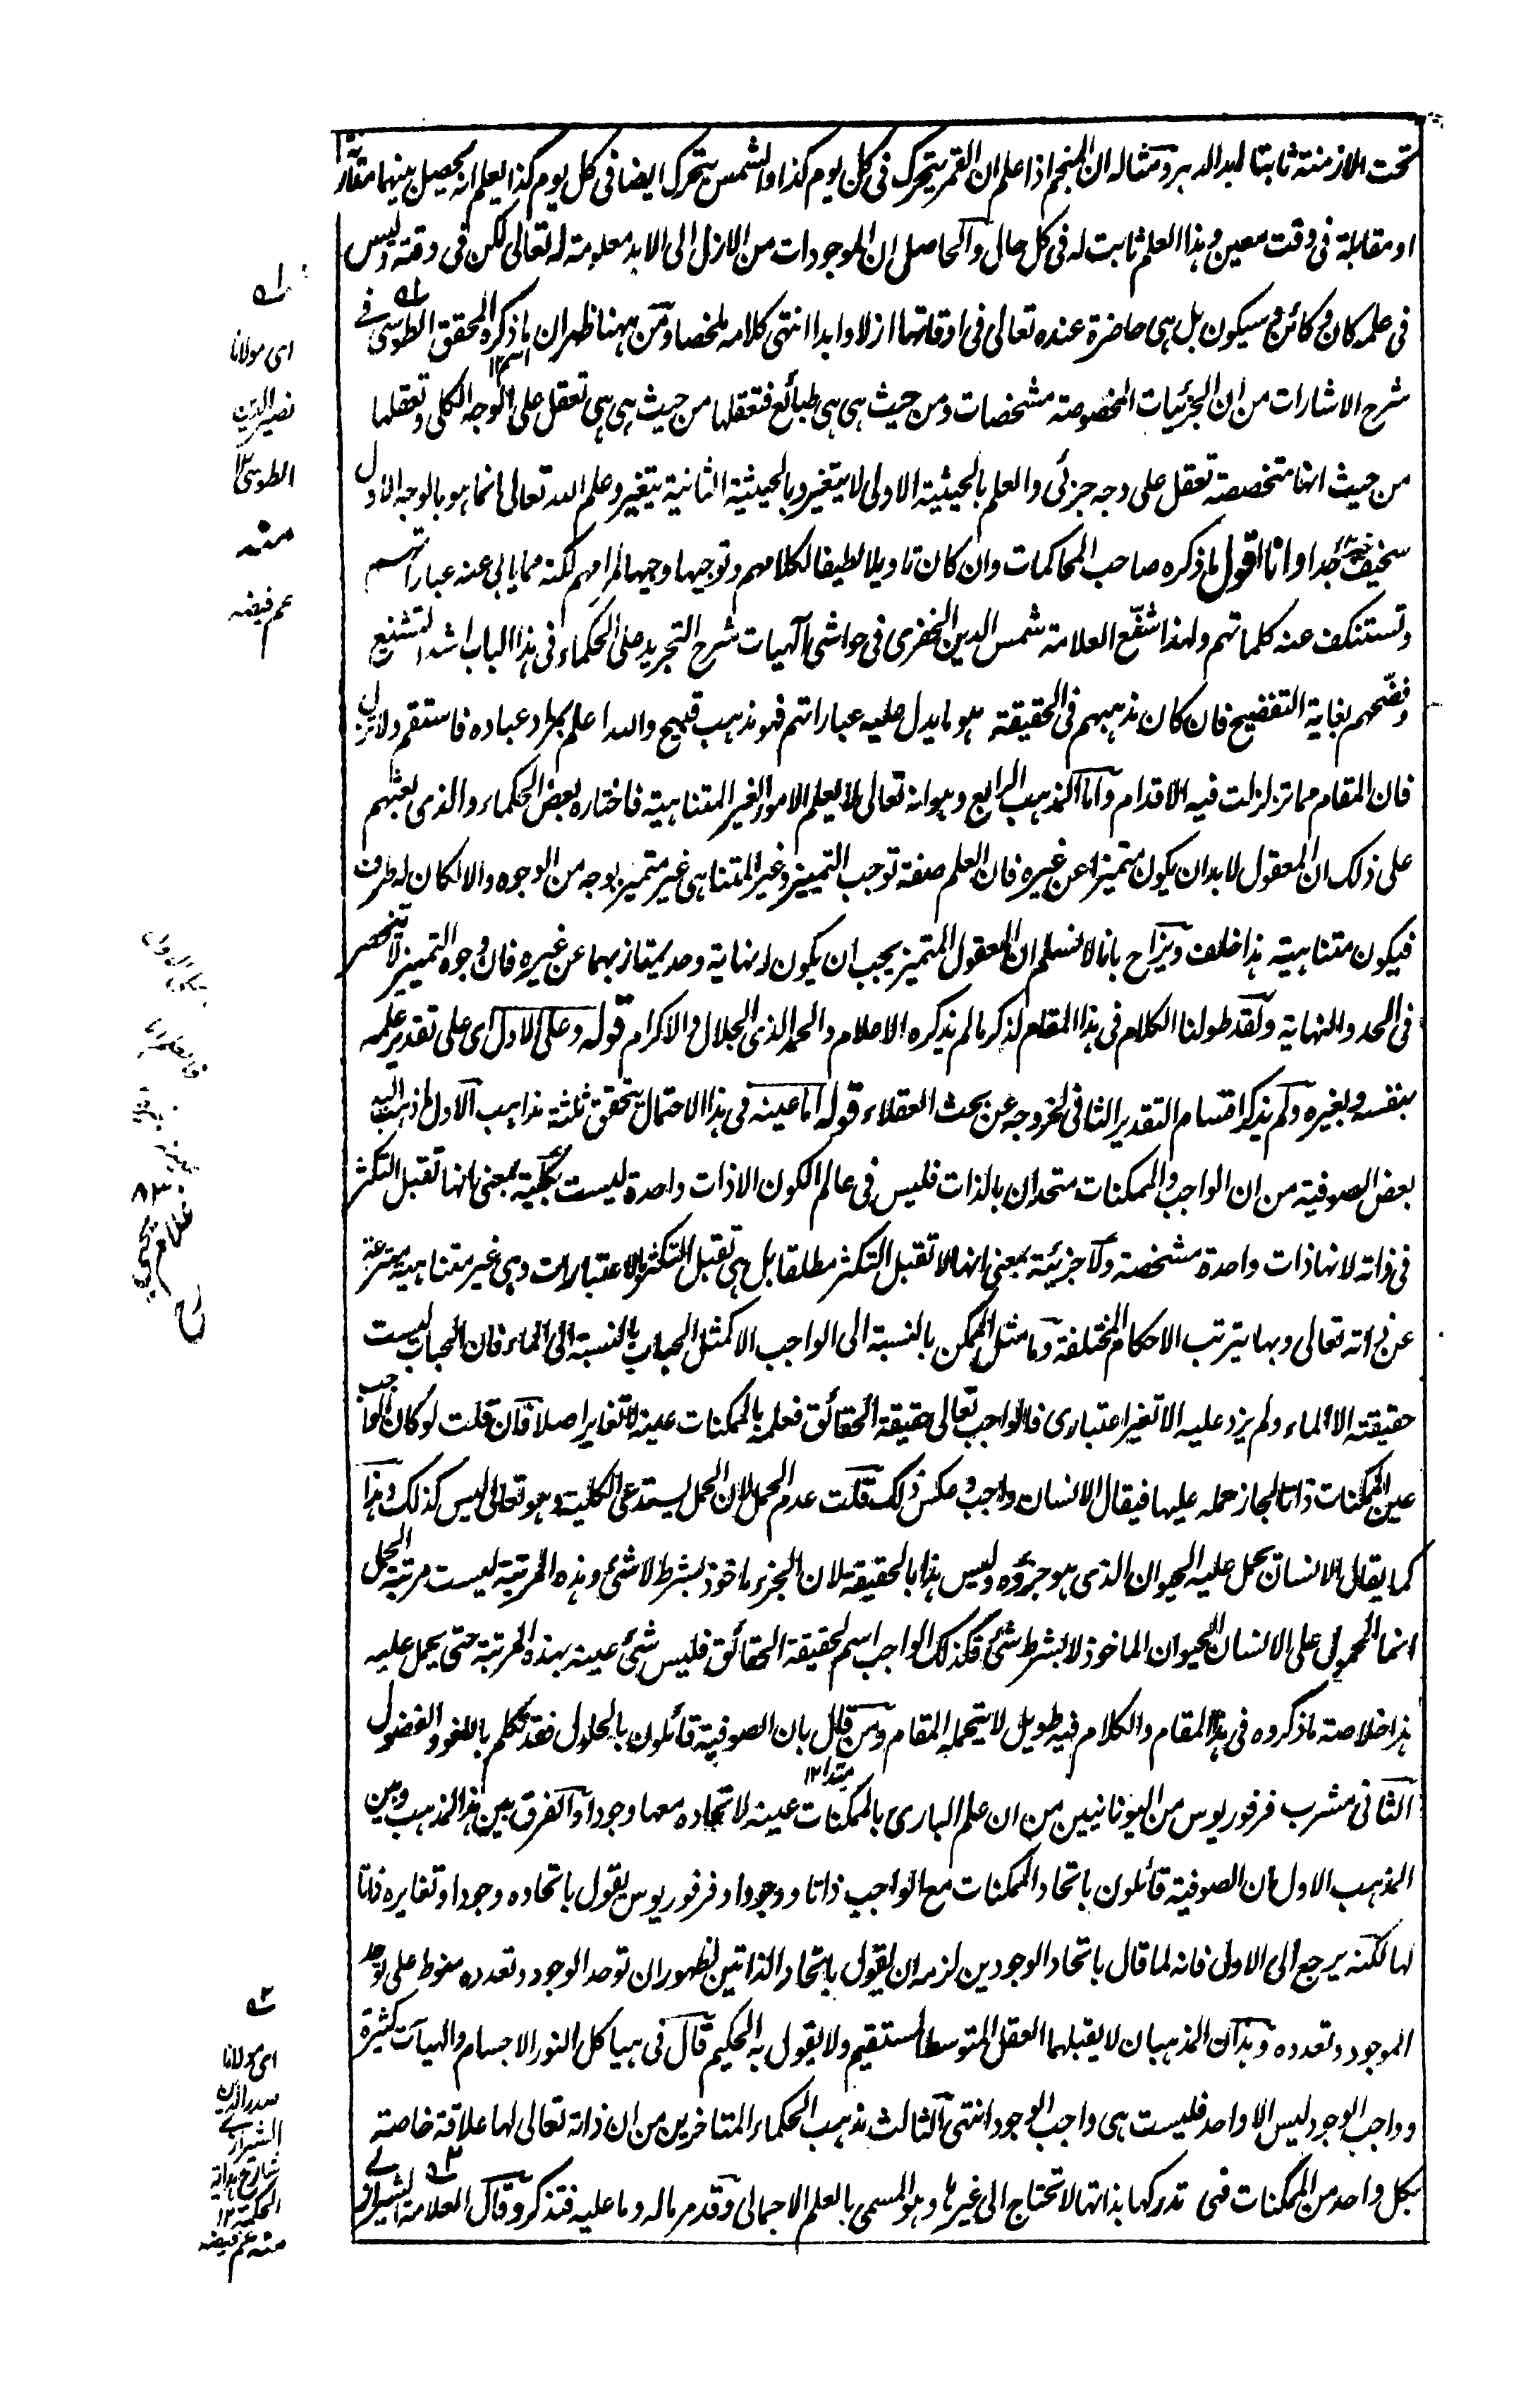 تحت الازمنة ثابتا ابد الدهر ومثاله ان المنجم اذا علم ان القمر يتحرك فى كل يوم كذا والشمس يتحرك ايضا فى كل يوم كذا يعلم انه يحصل بينهما مقارنة
او مقابلة فى وقت معين وهذا العلم ثابت له فى كل حال والحاصل ان الموجودات من الازل الى الابد معلومة له تعالى لكن فى وقته وليس
فى علمه كان وكائن وسيكون بل هى حاضرة عنده تعالى فى اوقاتها ازلا وابدا انتهى كلامه ملخصا ومن ههنا ظهر ان ما ذكره المحقق الطوسى فى
شرح الاشارات من ان الجزئيات المخصوصة مشخصات ومن حيث هى هى طبائع فتعقلها من حيث هى هى تعقل على الوجه الكلى وتعقلها
من حيث انها متخصصة تعقل على وجه جزئى والعلم بالحيثية الاولى لا يتغير وبالحيثية الثانية يتغير وعلم الله تعالى انما هو بالوجه الاول
سخيف جدا وانا اقول ما ذكره صاحب المحاكمات وان كان تاويلا لطيفا لكلامهم وتوجيها وجيها لمرامهم لكنه مما يابى عنه عباراتهم
وتستنكف عنه كلماتهم ولهذا شنّع العلامة شمس الدين الخفرى فى حواشى الٓهيات شرح التجريد على الحكماء فى هذا الباب اشد التشنيع
وفضّحهم بغاية التفضيح فان كان مذهبهم فى الحقيقة هو ما يدل عليه عباراتهم فهو مذهب قبيح والله اعلم بمراد عباده فاستقم ولا تزل
فان المقام مما تزلزلت فيه الاقدام واما المذهب الرابع وهو انه تعالى لا يعلم الامور الغير المتناهية فاختاره بعض الحكماء والذى بعثهم
على ذلك ان المعقول لا بد ان يكون متميزا عن غيره فان العلم صفة توجب التمييز وغير المتناهى غير متميز بوجه من الوجوه والا لكان له طرف
فيكون متناهية هذا خلف ويزاح بانا لا نسلم ان المعقول المتميز يجب ان يكون له نهاية وحد يمتاز بهما عن غيره فان وجوه التمييز لا تنحصر
فى الحد والنهاية ولقد طولنا الكلام فى هذا المقام لذكر ما لم يذكره الاعلام والحمد لذى الجلال والاكرام قوله وعلى الاول اى على تقدير علمه
بنفسه وبغيره ولم يذكر اقسام التقدير الثانى لخروجه عن بحث العقلاء قوله اما عينه فى هذا الاحتمال يتحقق ثلثة مذاهب الاول ما ذهب اليه
بعض الصوفية من ان الواجب والممكنات متحدان بالذات فليس فى عالم الكون الا ذات واحدة ليست بكلية بمعنى انها تقبل التكثر
فى ذاته لانها ذات واحدة مشخصة ولا جزئية بمعنى انها لا تقبل التكثر مطلقا بل هى تقبل التكثر بالاعتبارات وهى غير متناهية منتزعة
عن ذاته تعالى وبها يترتب الاحكام المختلفة وما مثل الممكن بالنسبة الى الواجب الا كمثل الحباب بالنسبة الى الماء فان الحباب ليست
حقيقته الا الماء ولم يزد عليه الا تغير اعتبارى فالواجب تعالى حقيقة الحقائق فعلمه بالممكنات عينه لا تغاير اصلا فان قلت لو كان الواجب
عين الممكنات ذاتا لجاز حمله عليها فيقال الانسان واجب وعكس ذلك قلت عدم الحمل لان الحمل يستدعى الكلية وهو تعالى ليس كذلك وهذا
كما يقال الانسان يحمل عليه الحيوان الذى هو جزؤه وليس هذا بالحقيقة لان الجزء ماخوذ بشرط لا شئ وهذه المرتبة ليست مرتبة الحمل
انما المحمول على الانسان الحيوان الماخوذ لا بشرط شئ فكذلك الواجب اسم لحقيقة الحقائق فليس شئ عينه بهذه المرتبة حتى يحمل عليه
هذا خلاصة ما ذكروه فى هذا المقام والكلام فيه طويل لا يتحمله المقام ومن قال بان الصوفية قائلون بالحلول فقد تكلم باللغو والفضول
الثانى مشرب فرفوريوس من اليونانيين من ان علم البارى بالممكنات عينه لاتحاده معها وجودا والفرق بين هذا المذهب وبين
المذهب الاول ان الصوفية قائلون باتحاد الممكنات مع الواجب ذاتا ووجودا وفرفوريوس يقول باتحاده وجودا وتغايره ذاتا
لها لكنه يرجع الى الاول فانه لما قال باتحاد الوجودين لزمه ان يقول باتحاد الذاتين لظهور ان توحد الوجود وتعدده منوط على توحد
الموجود وتعدده وهذان المذهبان لا يقبلهما العقل المتوسط المستقيم ولا يقول به الحكيم قال فى هياكل النور الاجسام والهيآت كثيرة
وواجب الوجود ليس الا واحد فليست هى واجب الوجود انتهى الثالث مذهب الحكماء المتاخرين من ان ذاته تعالى لها علاقة خاصة
بكل واحد من الممكنات فهى تدركها بذاتها لا تحتاج الى غيرها وهو المسمى بالعلم الاجمالى وقد مر ماله وما عليه فتذكر وقال العلامة الشيرازى
اى مولانا
نصير الدين
الطوسى ١٢
منه
عم فيضه
غلام يحيى
اى مولانا
صدر الدين
الشيرازى
شارح هداية
الحكمة ١٢
منه عم فيضه